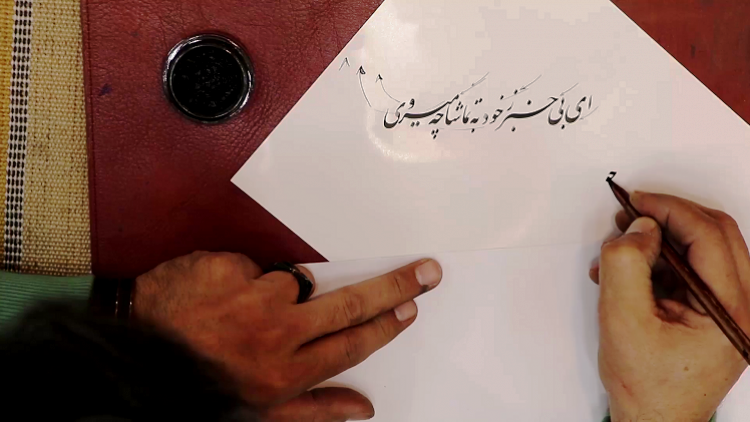 ای بی خبر ز خود به تماشا چه میروی